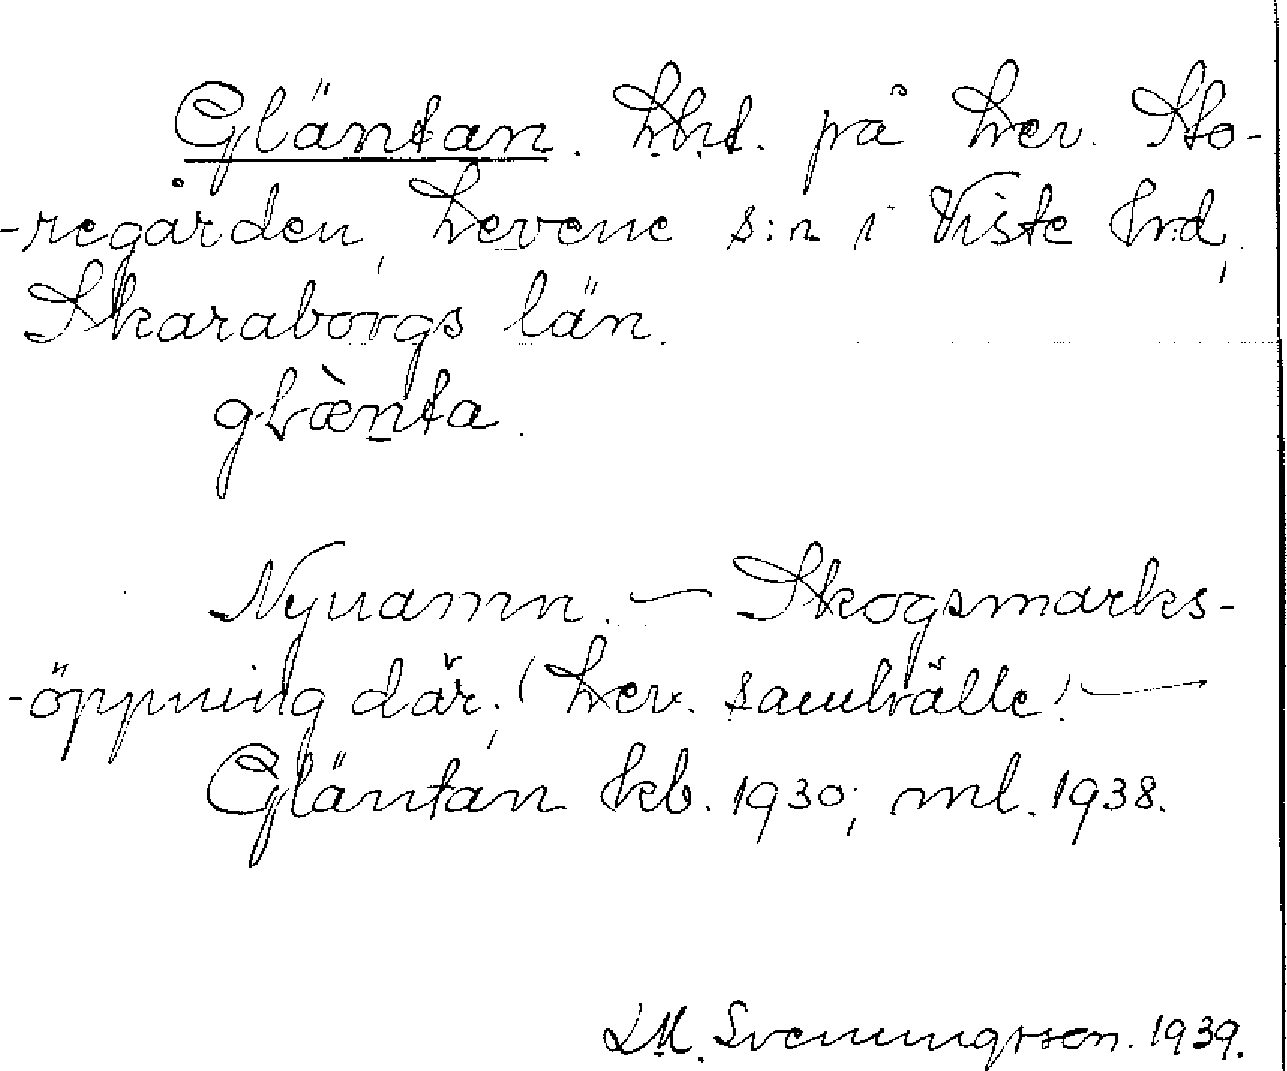 Gläntan. Lht. på Lev. Sto-
-regården, Levene s:n i Viste hrd,
Skaraborgs län.
glæ̀nta.
Nynamn. — Skogsmarks-
-öppning där. (Lev. samhälle! —
Gläntan kb. 1930; ml. 1938.
LM. Svenungsson. 1939.